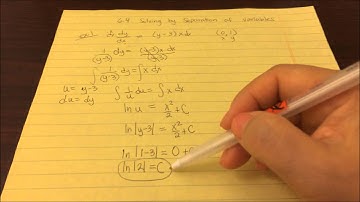 6.4 Solving by Separation of variables
dy/dx = (y-3)x dx (0,1)
x y
1/(y-3) dy = (y-3)x dx/(y-3)
∫ 1/(y-3) dy = ∫ x dx
u = y-3 ∫ 1/u du = ∫ x dx
du = dy
ln u = x²/2 + C
ln|y-3| = x²/2 + C
ln |1-3| = 0 + C
ln |2| = C